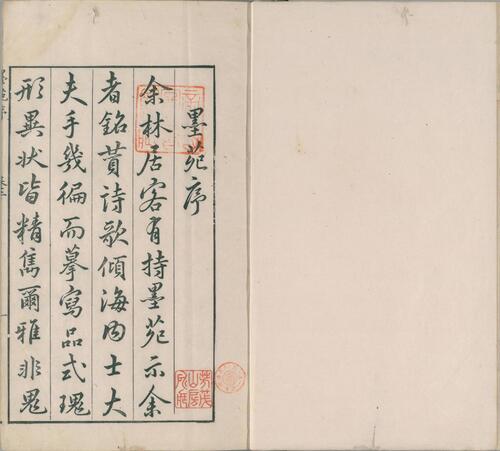 墨苑序
余林居客有持墨苑示余
者銘贊詩歌傾海內士大
夫手幾徧而摹寫品式瑰
形異狀皆精雋爾雅非思